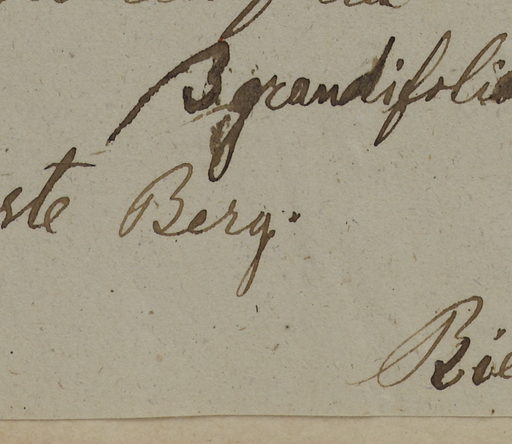 B grandifolia
ste Berg.
Rie